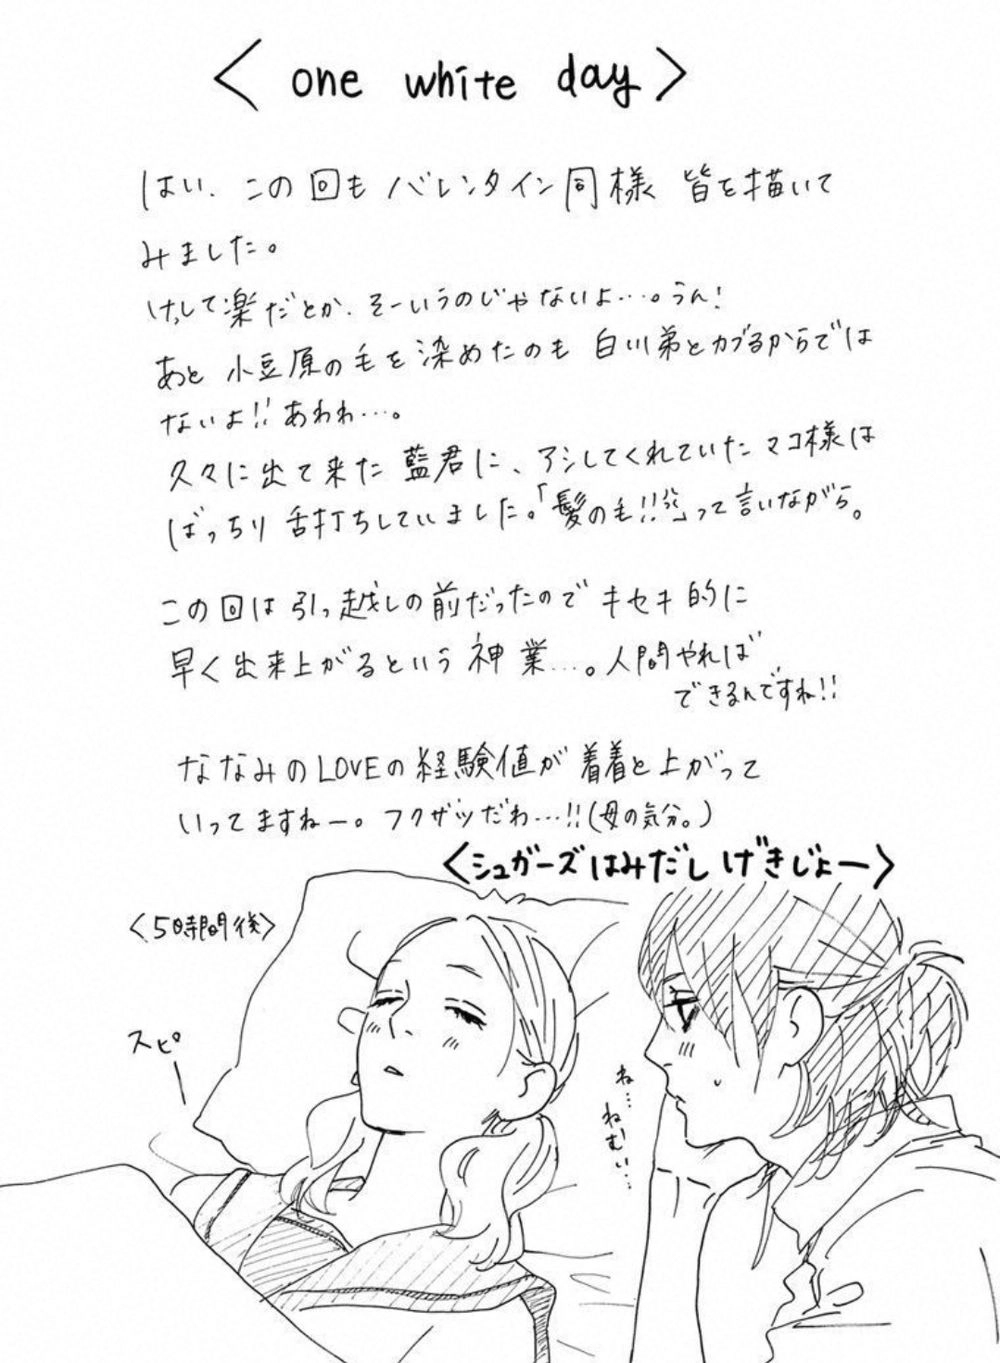 < one white day >
はい、この回も バレンタイン同様 皆を描いて
みました。
けっして楽だとか、そーいうのじゃないよ…。うん!
あと 小豆原の毛を染めたのも 白川弟とカブるからでは
ないよ!! あわわ…。
久々に出て来た 藍君に、アシしてくれていたマコ様は
ばっちり 舌打ちしていました。「髪の毛!!」って言いながら。
この回は 引っ越しの前だったので キセキ的に
早く出来上がるという 神業…。人間やれば
できるんですね!!
ななみのLOVEの経験値が 着着と上がって
いってますねー。フクザツだわ…!! (母の気分。)
<シュガーズはみだし げきじょー>
<5時間後>
スピ
ね…
ねむい…